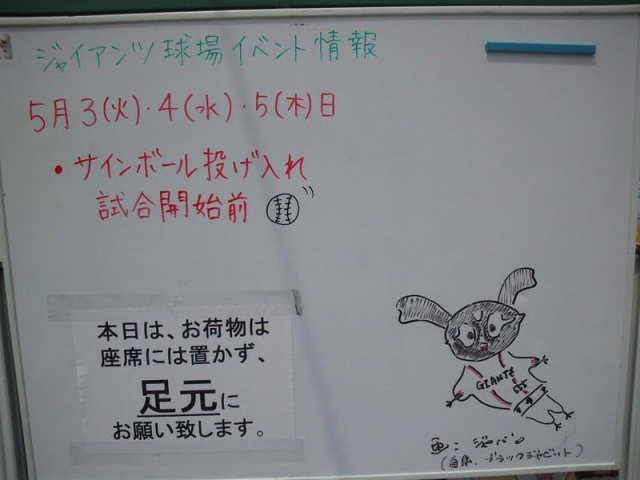 ジャイアンツ球場イベント情報
5月3(火)・4(水)・5(木)日
・サインボール投げ入れ
試合開始前
本日は、お荷物は
座席には置かず、
足元に
お願い致します。
GIANTS
555
画:ジャバン